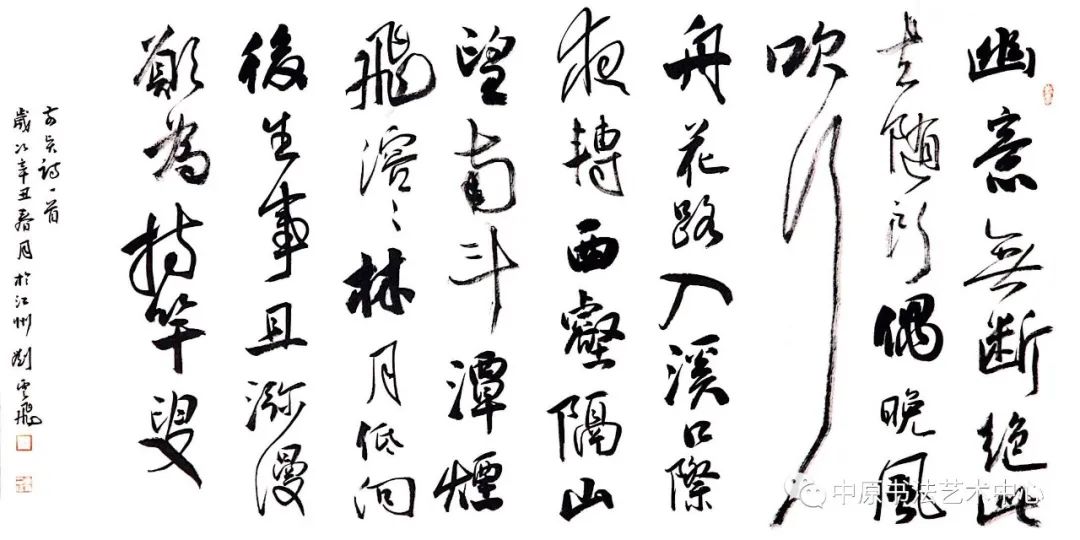 幽意無斷絕此
去隨所偶晚風
吹行
舟花路入溪口際
夜轉西壑隔山
望南斗潭煙
飛溶〻林月低向
後生事且瀰漫
願為持竿叟
詩一首
歲次辛丑春月於江州劉雲飛
中原书法艺术中心